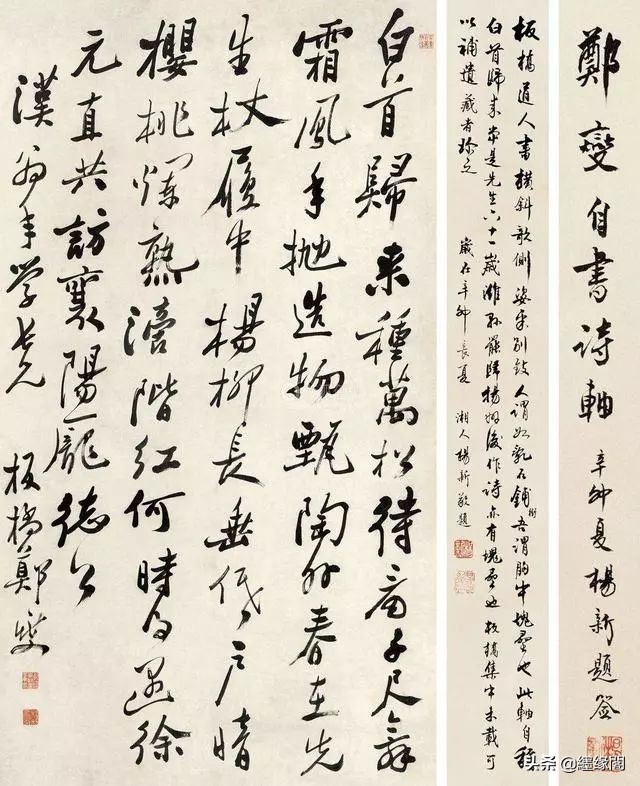 鄭燮自書詩軸 辛卯夏楊新題簽
板橋道人書橫斜欹側姿采別致人謂如亂石鋪街吾謂胸中塊壘也此軸自稱
白首歸來當是先生六十一歲濰縣罷歸揚州後作詩亦有塊壘也板橋集中未載可
以補遺藏者珍之 歲在辛卯長夏 湘人楊新敬題
白首歸來種萬松待看千尺舞
霜風年拋造物甄陶外春在先
生杖屨中楊柳長垂低戶暗
櫻桃爛熟滴階紅何時遇徐
元直共訪襄陽龐德公
漢翁年學老兄 板橋鄭燮
头条